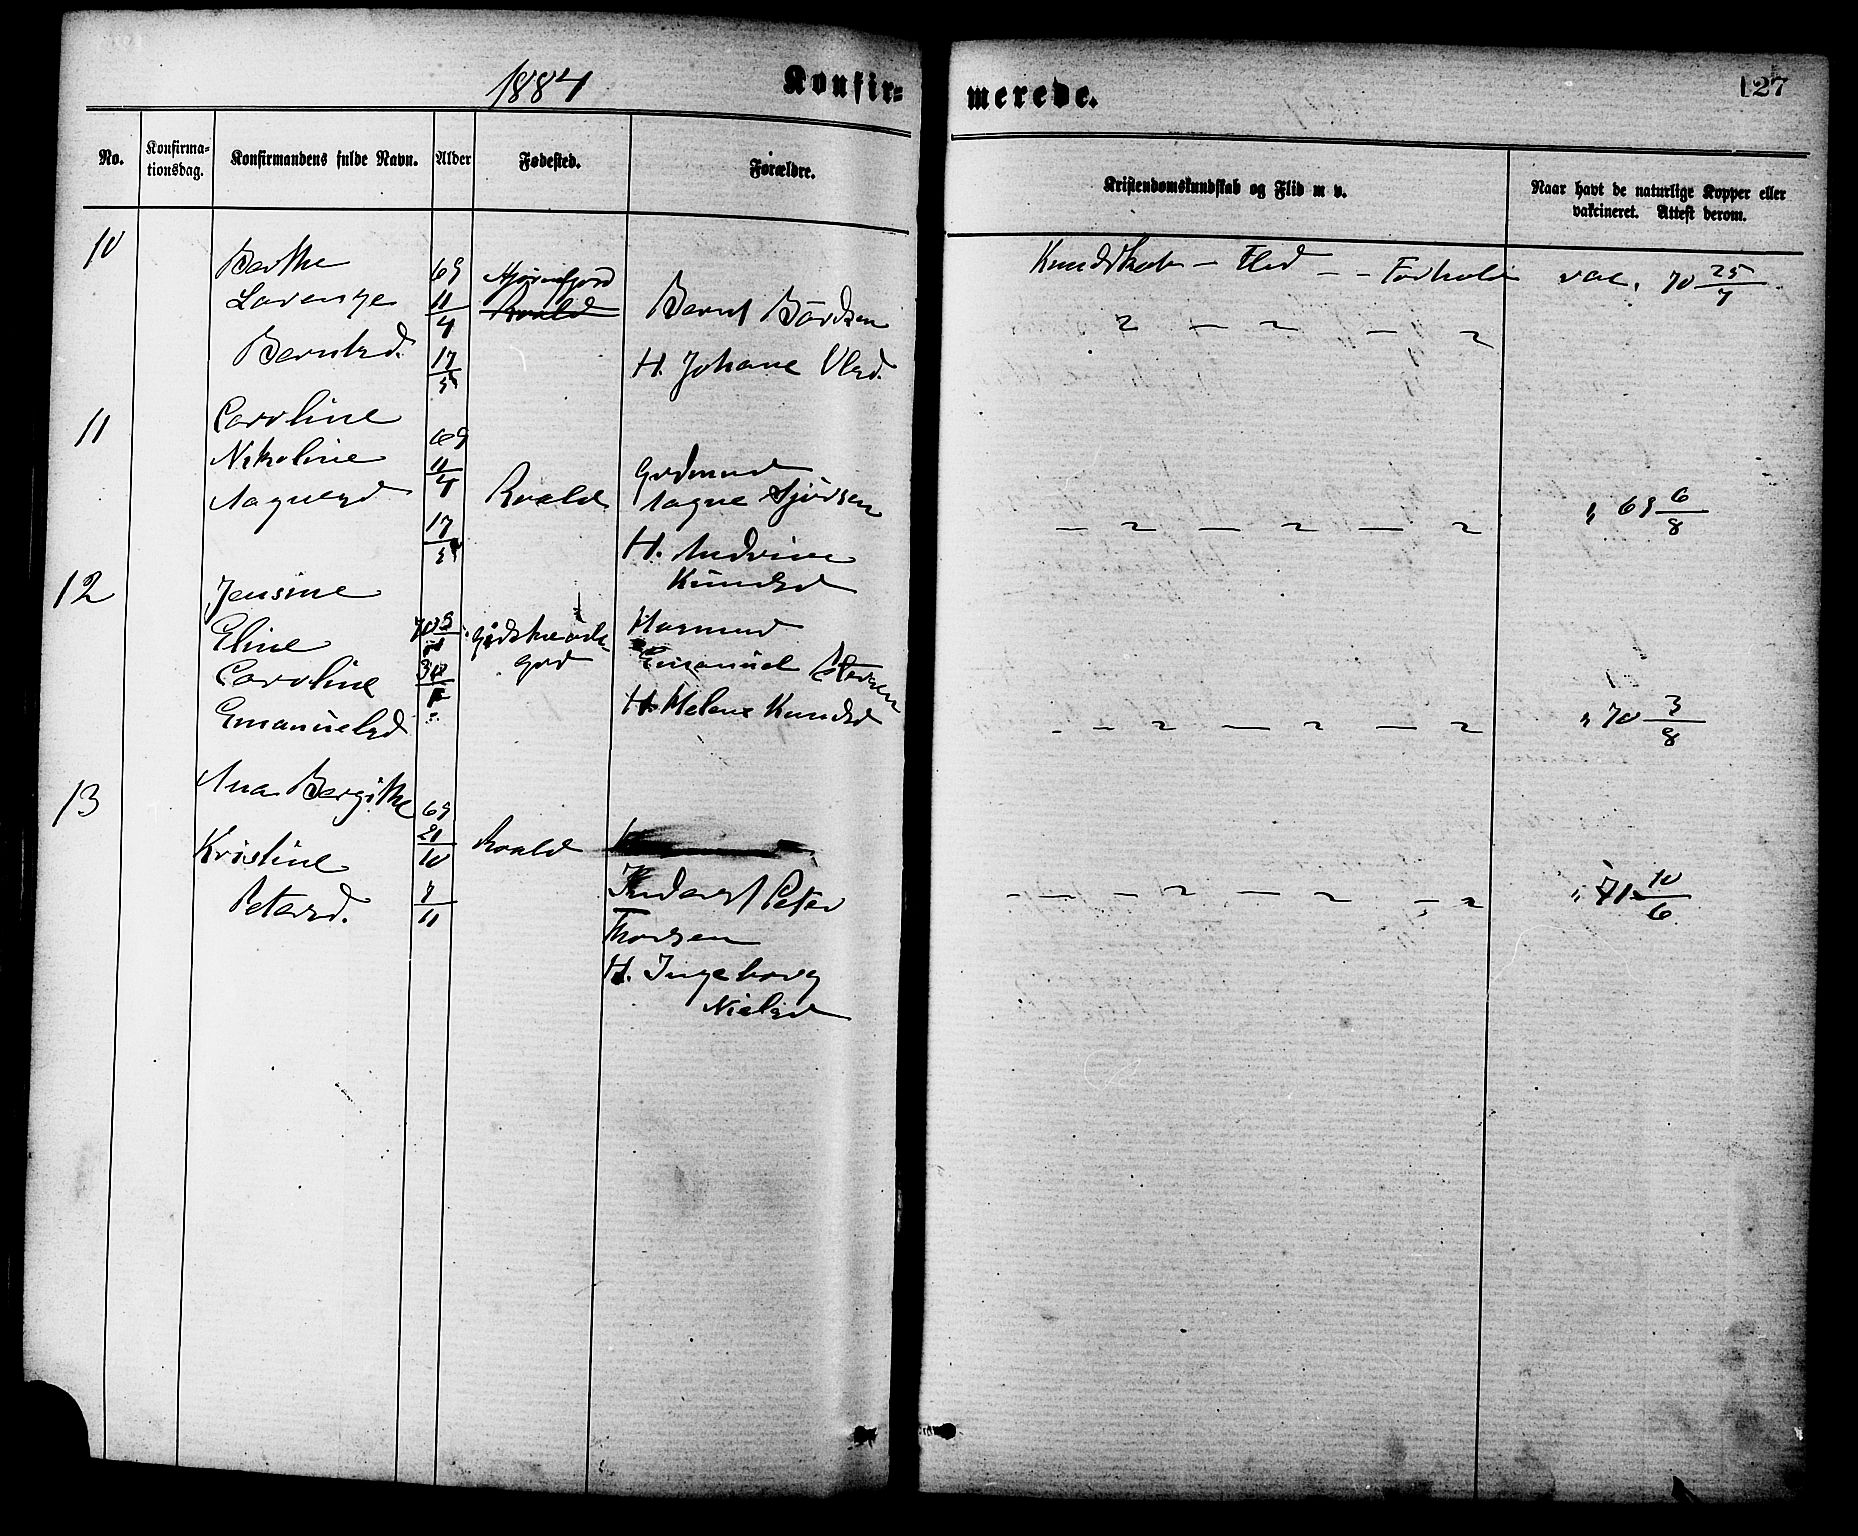 1884
Konfir=
merede.
127
No.
Konfirma-
tionsdag.
Konfirmandens fulde Navn.
Alder
Fødested.
Forældre.
Kristendomskundskab og Flid m v.
Naar havt de naturlige Kopper eller
vakcineret. Attest derom.
10
Berthe
Lovenze
Berntsd.
69
11
4
17
5
Roald
Bernt Bårdsen
H. Johane Olsd.
Kundskab - Flid - - Forhold
vac. 70 25/7
11
Caroline
Nikoline
Aagnesd
69
11
4
17
5
Roald
Godmund
Aagne Sjursen
H. Andrine
Knudsd
" 69 6/8
12
Jensine
Eline
Caroline
Emanuelsd
70
Rasmus
Emanuel Petersen
H. Helene Knudsd
" 70 3/8
13
Ana Bergithe
Kristine
Petersd.
69
21
10
11
Roald
Peter
Thorsen
H. Ingeborg
Nielsd
" 71 10/6